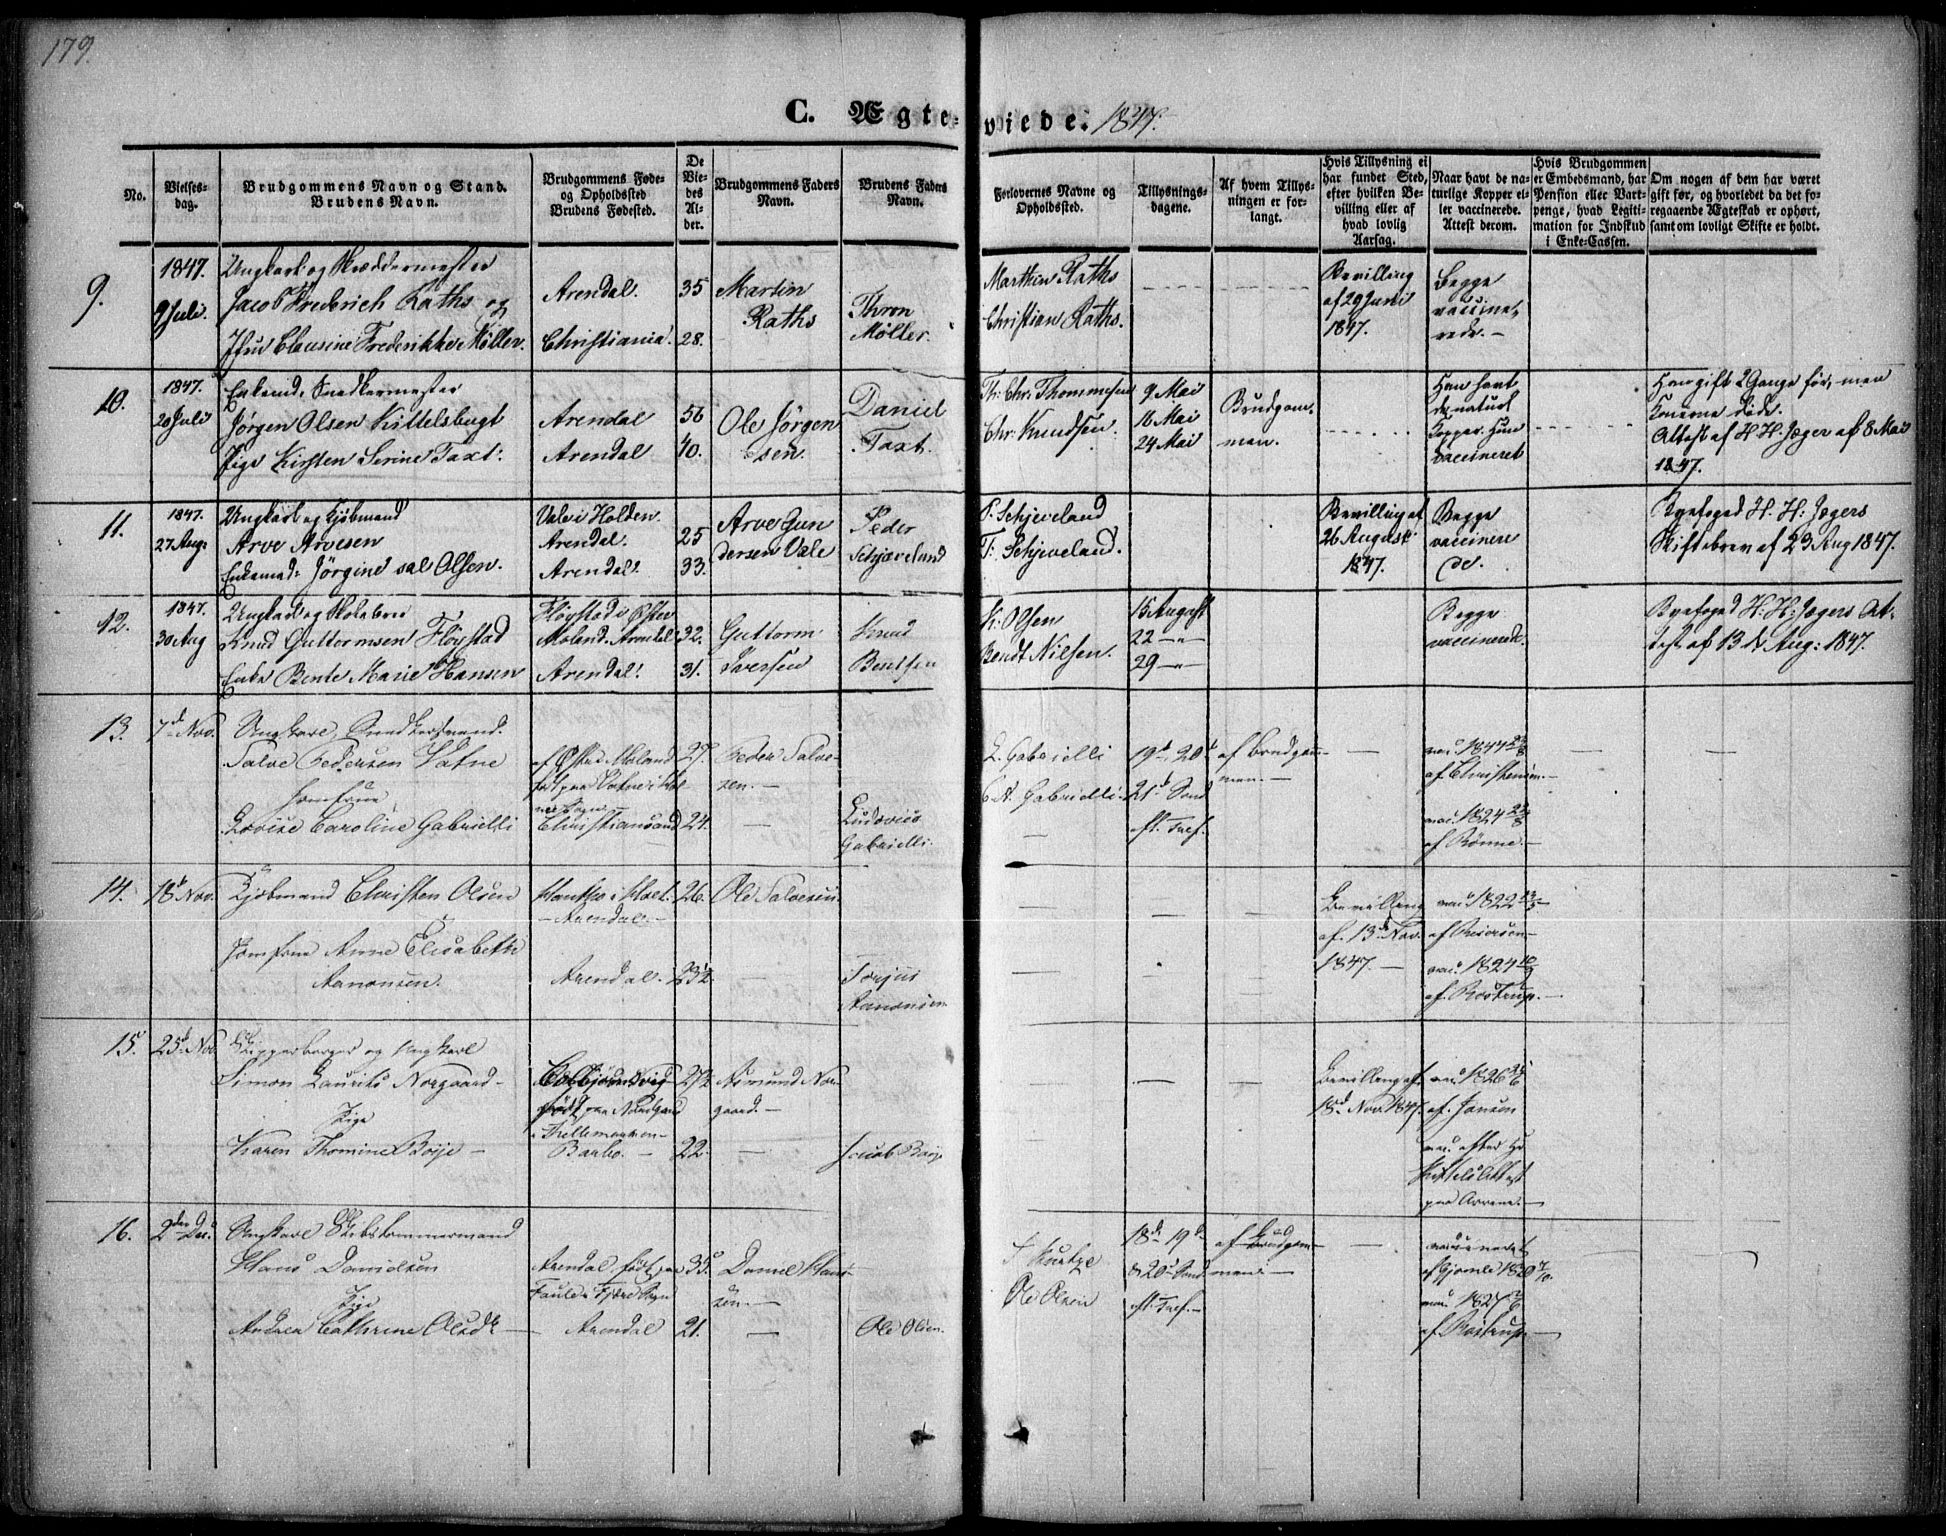 179.
C. Ægte-viede. 1847.
No.
Vielses-dag.
Brudgommens Navn og Stand.
Brudens Navn.
Brudgommens Føde- og Opholdssted
Brudens Fødested.
De Viedes Alder.
Brudgommens Faders Navn.
Brudens Faders Navn.
Forlovernes Navne og Opholdssted.
Tillysnings-dagene.
Af hvem Tillysningen er forlangt.
Hvis Tillysning ei har fundet Sted, efter hvilken Bevilling eller af hvad lovlig Aarsag.
Naar havt de naturlige Kopper eller vaccinerede. Attest derom.
Hvis Brudgommen er Embedsmand, har Pension eller Vartpenge, hvad Legitimation for Indskud i Enke-Cassen.
Om nogen af dem har været gift før, og hvorledet da det foregaaende Ægteskab er ophørt, samt om lovligt Skifte er holdt.
9.
1847.
9 Juli.
Ungkarl og Skræddermester
Jacob Frederich Raths og
Jfru Clausine Frederikke Møller.
Arendal.
Christiania.
35
28.
Martin
Raths
Thron
Møller.
Marthin Raths
Christian Raths.
Bevilling
af 29 Juni
1847.
Begge
vaccine,
rede.
10.
1847.
20 Juli
Enkemd. Snedkermester
Jørgen Olsen Kittelsbugt
Pige Kirsten Serine Taxt.
Arendal
Arendal
56
40.
Ole Jörgen
sen.
Daniel
Taxt.
Th: Chr. Thommesen
Chr. Knudsen.
9 Mai
16 Mai
24 Mai
Brudgom,
men.
Han havt
de naturl
Kopper. Hun
vaccineret
Han gift 2 Gange før, men
Konerne døde.
Attest af H. H. Jæger af 8 Mai
1847.
11.
1847.
27 Aug:
Ungkarl og Kjøbmand
Arve Arvesen
Enkemad: Jörgine sal Olsen.
Vale i Holden.
Arendal.
Arendal.
25
33.
Arve Gun
dersen Vale
Peder
Schjæveland
P. Schjeveland
T: Schjeveland.
Bevilling af
26 August
1847.
Begge
vaccinere
de.
Byefoged H. H. Jægers
Skiftebrev af 23 Aug 1847.
12.
1847.
30 Aug
Ungkarl og
Knud Guttormsen Fløystad
Enke Bente Marie Hansen
Fløystad i Øster
Moland. Arendal
Arendal.
32.
31.
Guttorm
Iversen
Knud
Bentsen
K. Olsen
Bendt Nilsen.
15 August
22 — "
29 — "
Begge
vaccinerede.
Byefoged H. H: Jægers At-
test af 13 d Aug: 1847.
13.
7d Nov.
Ungkarl, Snedkersvend.
Salve Pedersen Vatne
Jomfrue
Lovise Caroline Gabrielli
af Østre Moland
Christiansand
27.
24.
Peder Salve-
sen.
Ludovico
Gabrielli.
L. Gabrielli
C. A. Gabrielli
19d, 20d
21d Sønd
eft. Tref.
af Brudgom-
men.
vac. 1844
af Christensen
vac. 1824
af Rønne.
14.
18d Nov.
Kjøbmand Christen Olsen
Jomfrue Anne Elisabeth
Aanonsen.
i Holt.
Arendal.
Arendal.
26.
23½
Ole Salvesen.
Torjus
Aanonsen
Bevilling
af 13d Nov.
1847.
vac. 1822
af Reiersen
vac. 1824
af Rostrup.
15.
25d Nov.
Skipperborger og Ungkarl
Simon Laurits Norgaard
Pige
Karen Thomine Boye
Colbjørnsvig
født paa Nordgaard
Barbo.
27½
22.
Asmund Nor-
gaard.
Jacob Boye
Bevilling af
18d Nov. 1847.
vac. 1826
af Jansen
vac. efter
Attest
16.
2den Dec.
Ungkarl Skibstømmermand
Hans Danielsen
Pige
Andrea Cathrine Olsdt
Arendal, født paa
i Fjære Sogn
Arendal
35.
21.
Daniel Han-
sen.
Ole Olsen.
Ole Olsen
18d, 19d
& 20d Sønd
eft. Tref.
af Brudgom-
men.
vaccineret
vac. 1827
af Rostrup